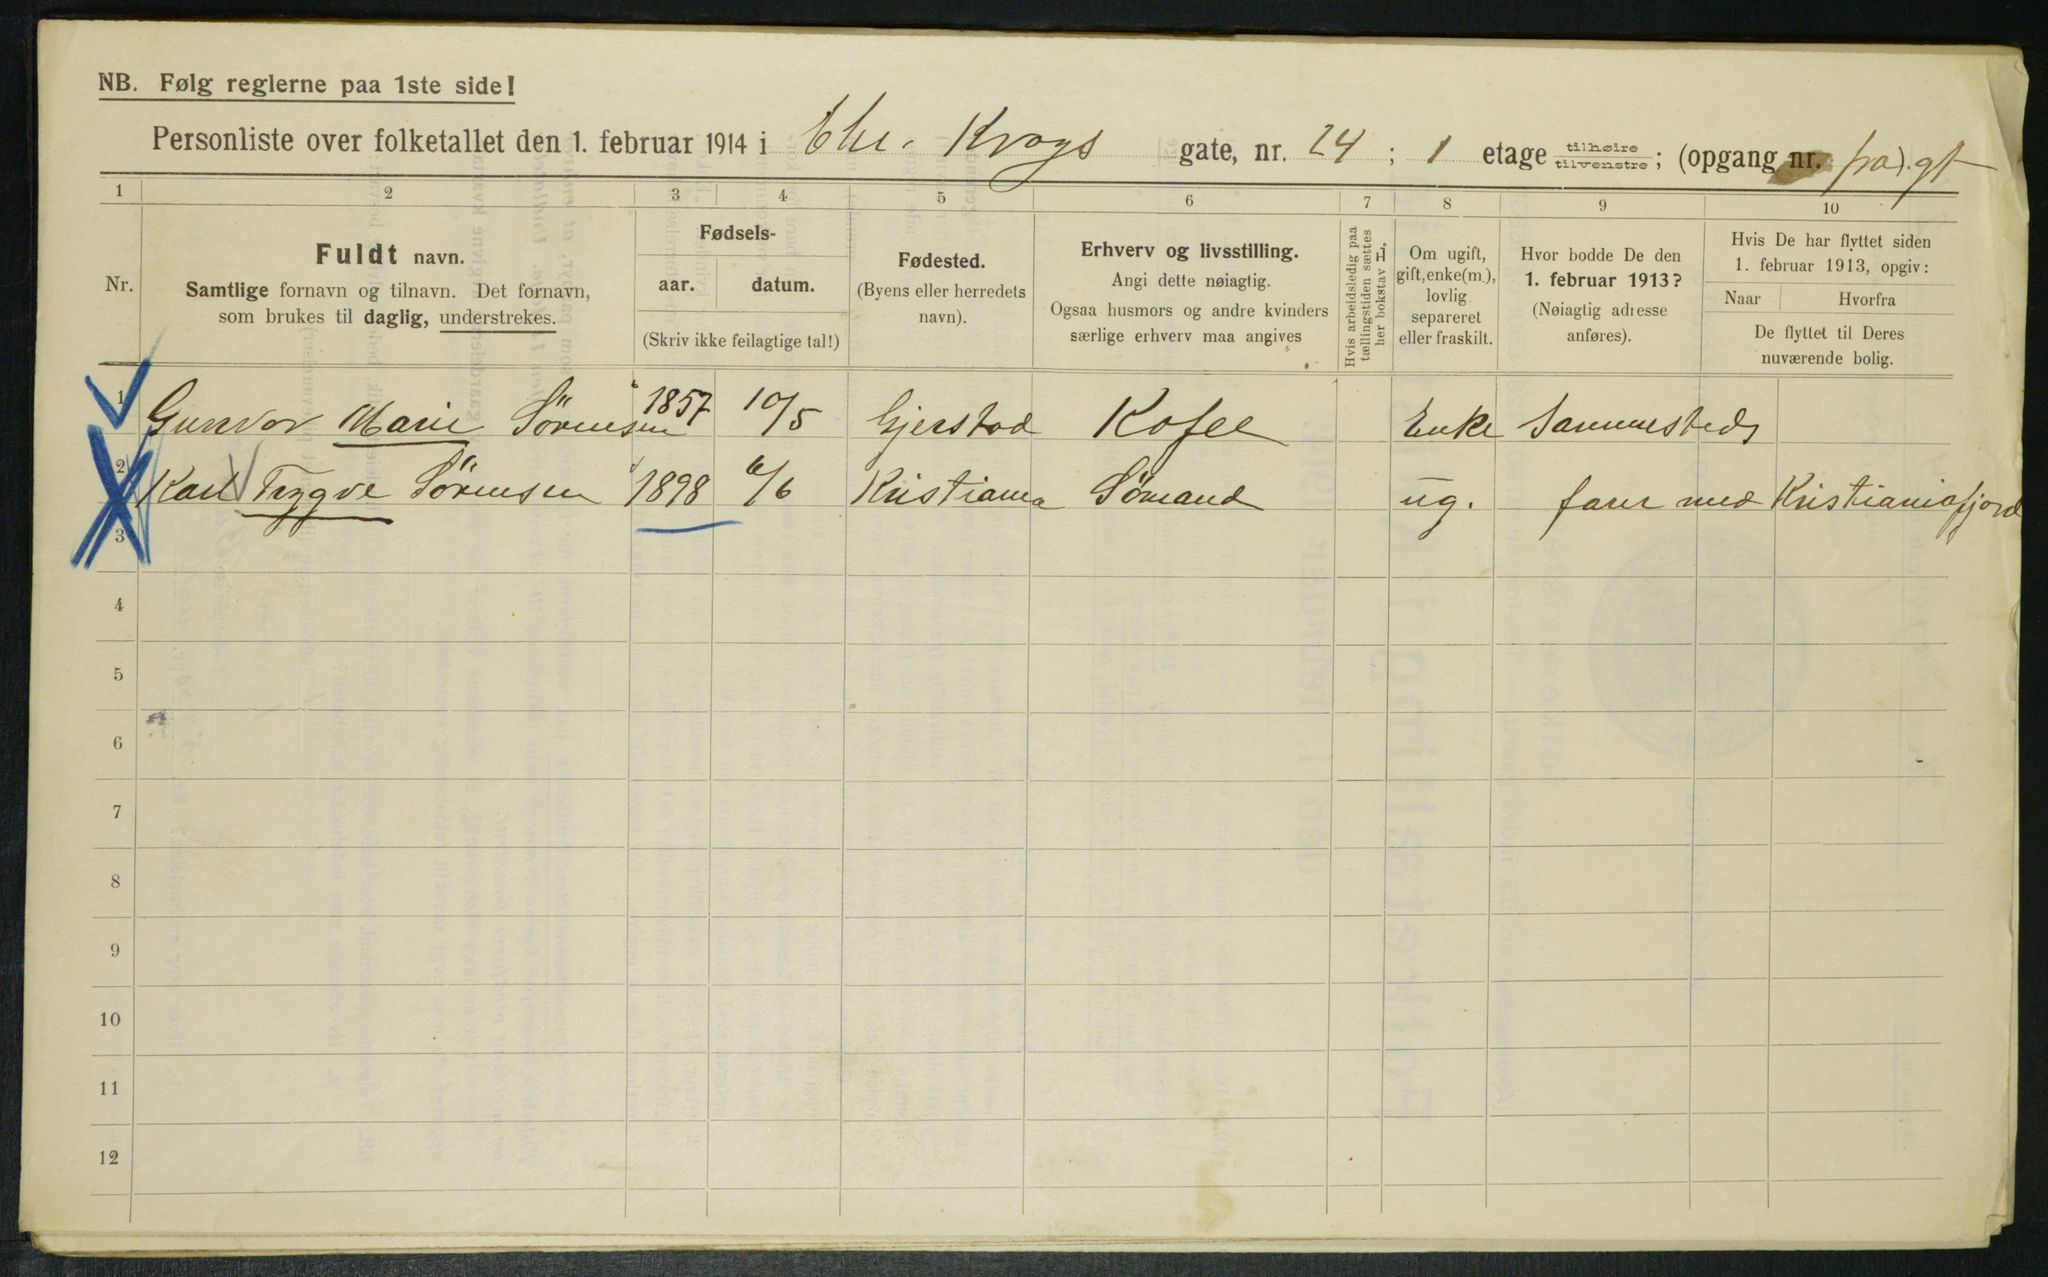 NB. Følg reglerne paa 1ste side!
Personliste over folketallet den 1. februar 1914 i Chr. Krogs gate, nr. 24; 1 etage tilhøire tilvenstre; (opgang nr. fra). gt
1 2 3 4 5 6 7 8 9 10
Nr.
Fuldt navn.
Samtlige fornavn og tilnavn. Det fornavn,
som brukes til daglig, understrekes.
Fødsels-
aar. datum.
(Skriv ikke feilagtige tal!)
Fødested.
(Byens eller herredets
navn).
Erhverv og livsstilling.
Angi dette nøiagtig.
Ogsaa husmors og andre kvinders
særlige erhverv maa angives
Hvis arbeidsledig paa
tællingstiden sættes
her bokstav L.
Om ugift,
gift, enke(m.),
lovlig
separeret
eller fraskilt.
Hvor bodde De den
1. februar 1913?
(Nøiagtig adresse
anføres).
Hvis De har flyttet siden
1. februar 1913, opgiv:
Naar Hvorfra
De flyttet til Deres
nuværende bolig.
1 Gunvor Marie Sörensen 1857 10/5 Gjerstad Kafee Enke Sammesteds
2 Karl Trygve Sörensen 1898 6/6 Kristiania Sömand ug. farer med Kristianiafjord
3
4
5
6
7
8
9
10
11
12